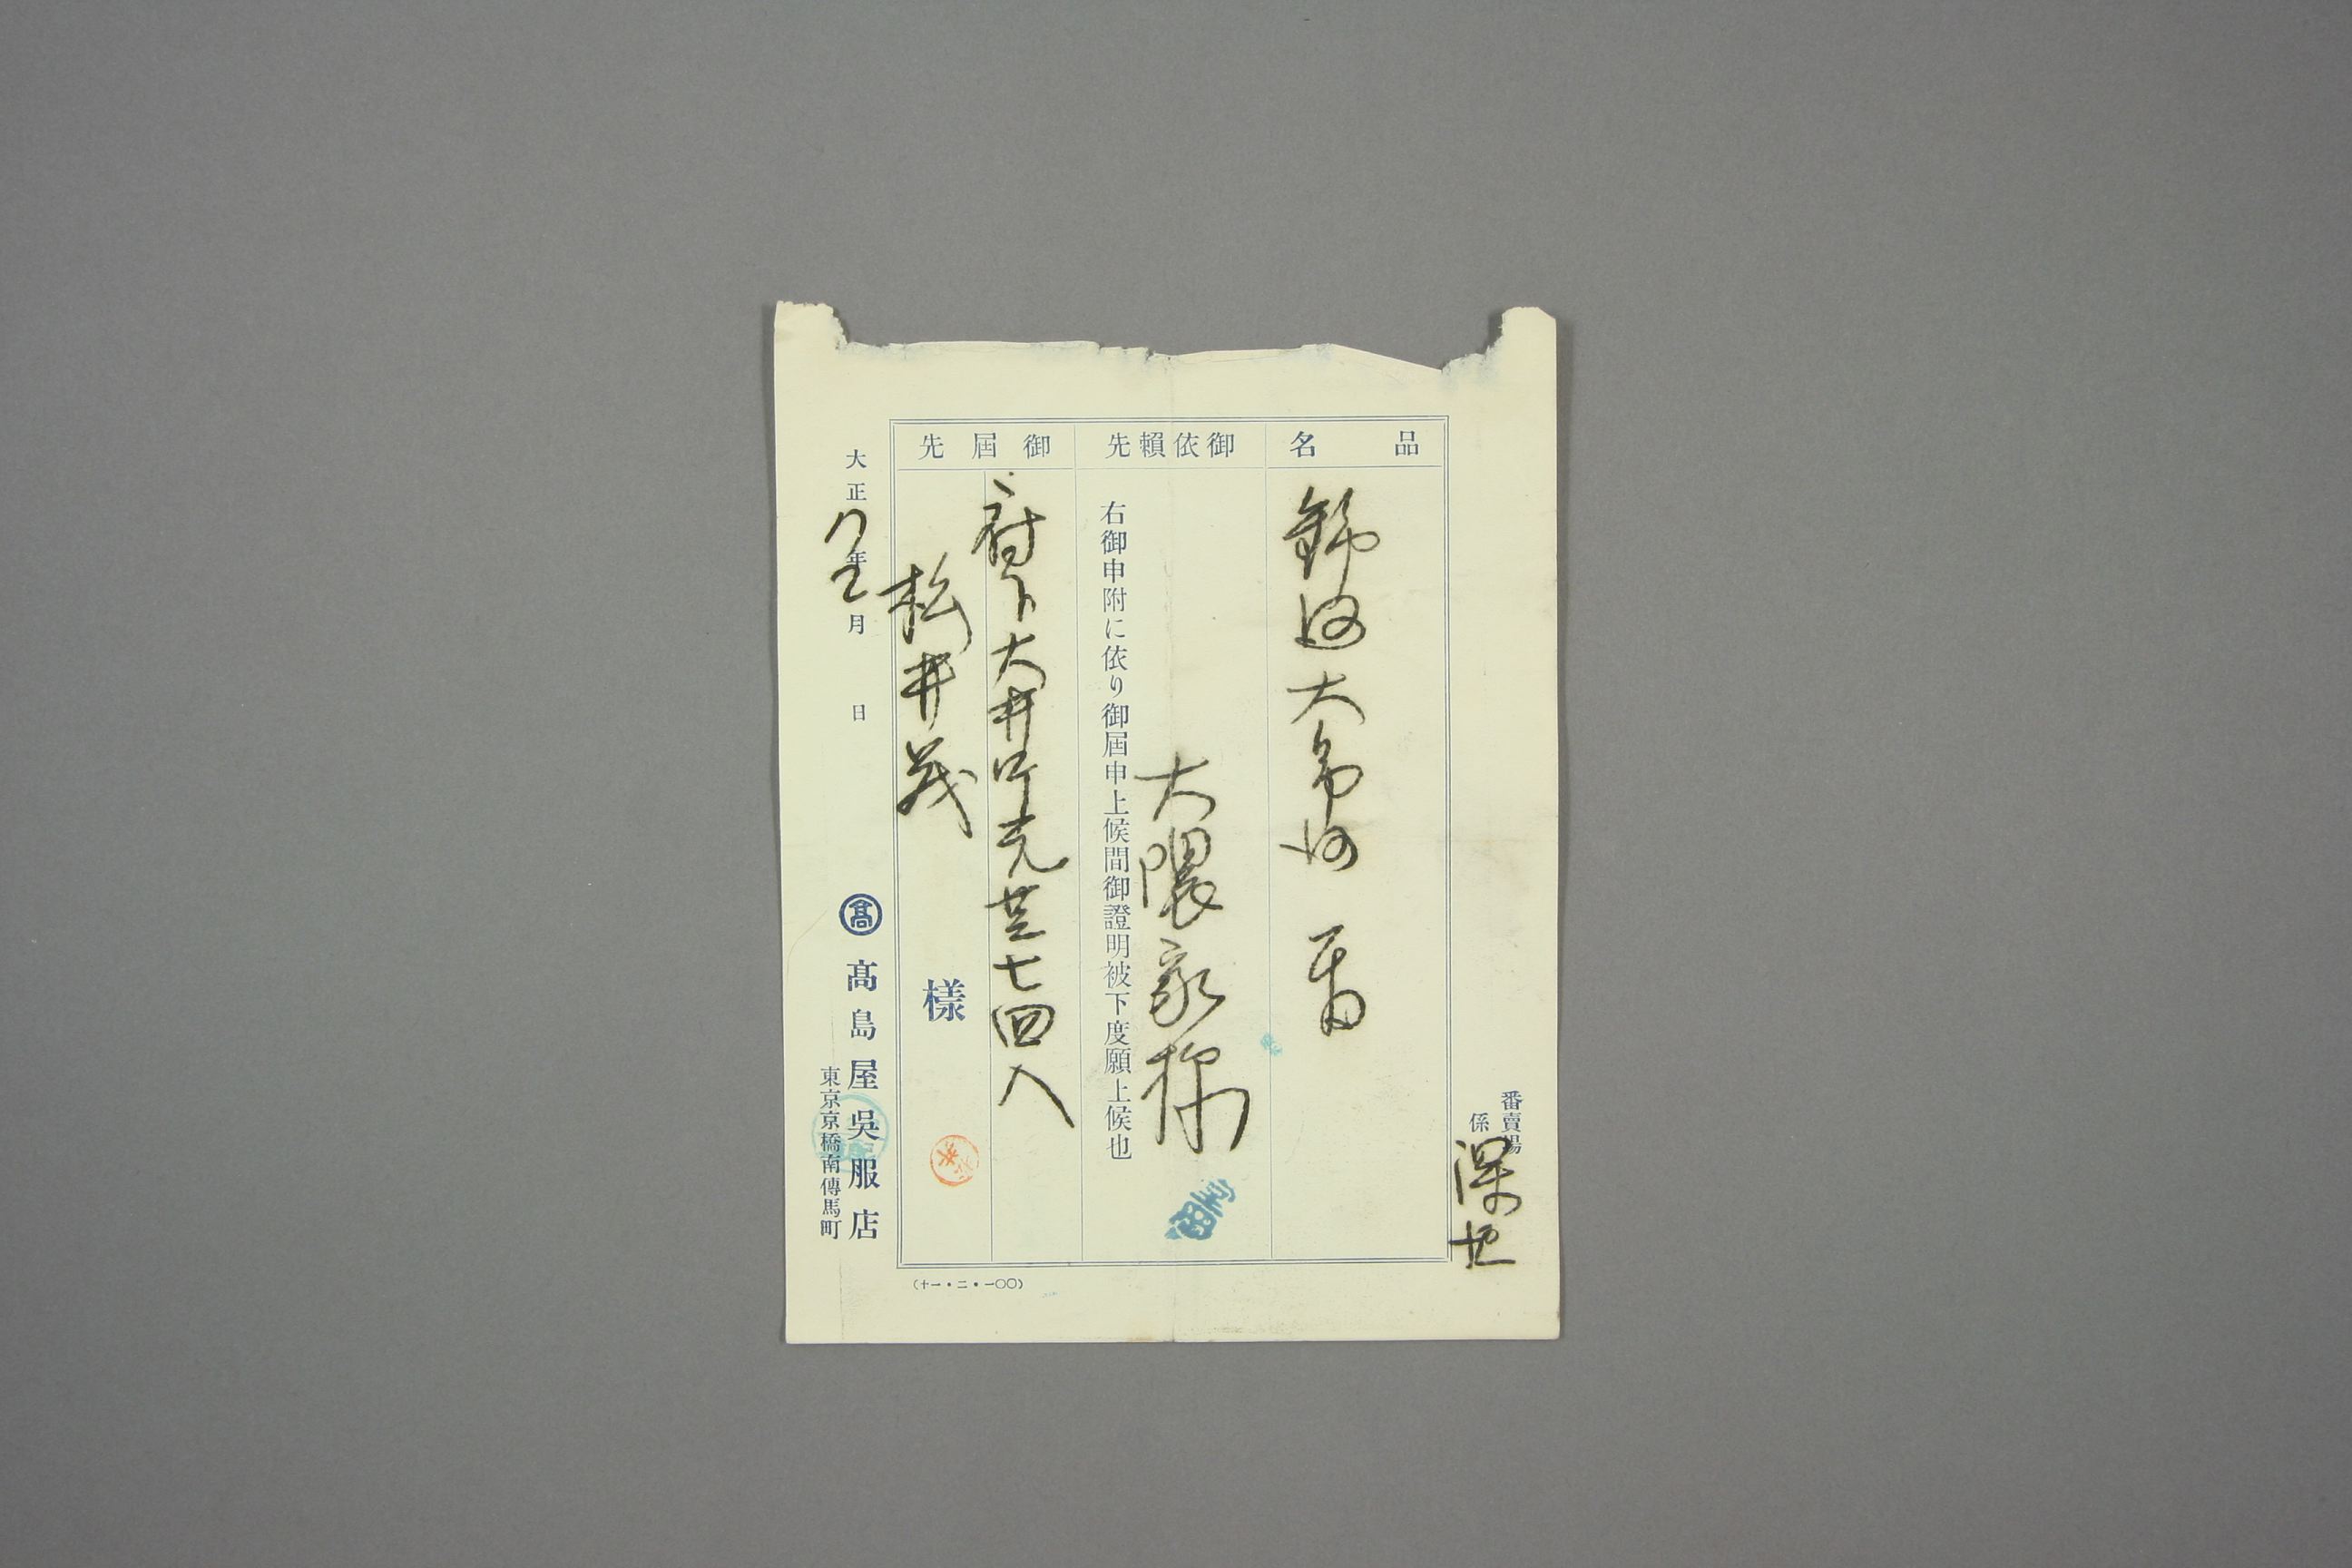 番賣場
係 深地
品名
大
御依賴先
大隈家様
右御申附に依り御屆申上候間御證明被下度願上候也
御屆先
府下大井町元芝七四八
松井茂
樣
大正 年 月 日
髙
髙島屋吳服店
東京京橋南傳馬町
(十一・二・一〇〇)